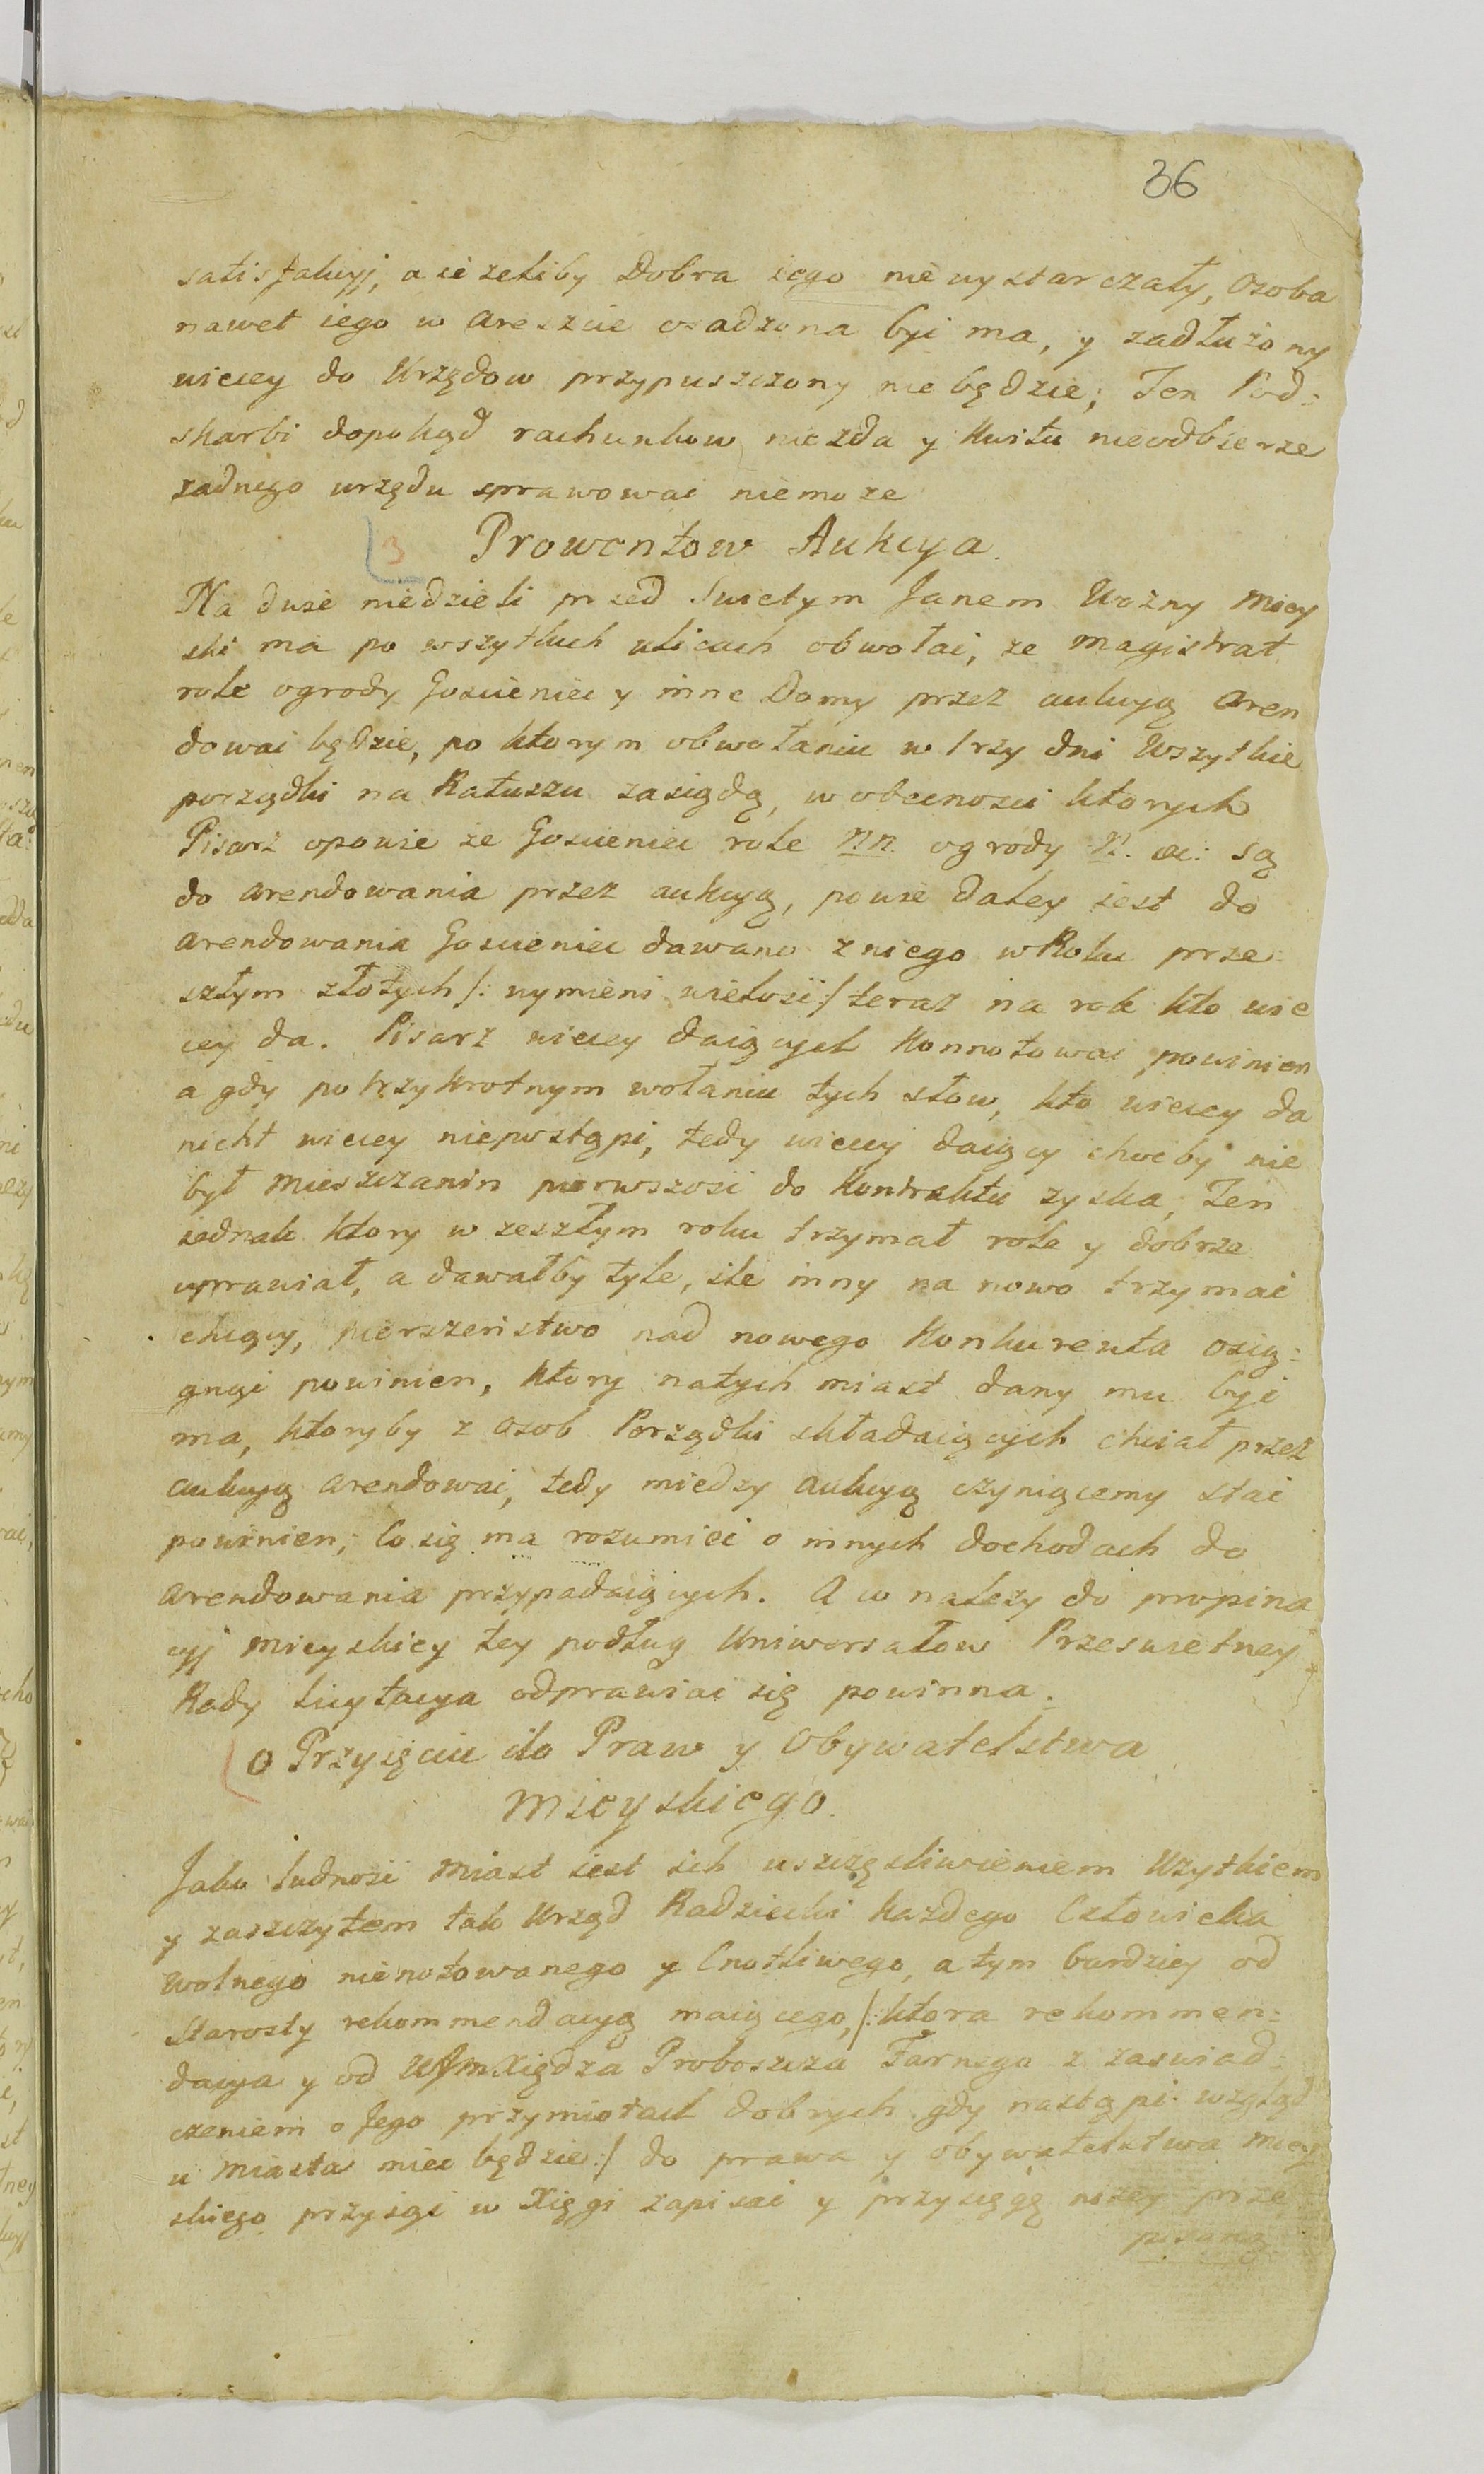 36
satisfakcyj, a ieżeliby Dobra iego niewystarczały, Osoba
nawet iego w Areszcie osadzona być ma, y zadłużony
wiecey do Urzędow przypuszczony nie będzie; Ten Pod:
skarbi dopokąd rachunkow niezda y kwitu nieodbierze
zadnego urzędu sprawować niemoze
3 Prowentow Aukcya.
Na dwie niedzieli przed Swietym Janem Wozny Miey
ski ma po wszytkich ulicach obwołać, ze Magistrat
role ogrody Gosciniec y inne Domy przez aukcyą aren
dować będzie, po ktorym obwołaniu w trzy dni Wszytkie
porządki na Ratuszu zasiądą, w obecnosci ktorych
Pisarz opowie ze Gościeniec role nn. ogrody n. etc: są
do arendowania przez aukcyą, powie Daley iest do
arendowania Gościeniec dawano z niego w Roku prze:
szłym złotych /: wymieni wielość :/ teraz na rok kto wie
cey da. Pisarz wiecey daiących konnotować powinien
a gdy po trzykrotnym wołaniu tych słow, kto wiecey da
nicht wiecey niepostąpi, tedy wiecey daiący choćby nie
był Mieszczanin pierwszość do Kontraktu zyska, Ten
iednak ktory w zeszłym roku trzymał role y dobrze
uprawiał, a dawałby tyle, ile inny na nowo trzymać
chcący, pierszeństwo nad nowego Konkurenta osią:
gnąć powinien, ktory natychmiast dany mu być
ma, ktoryby z osob Porządki składaiących chciał przez
aukcyą arendować, tedy miedzy aukcyą czyniącemy stać
powinien; Co się ma rozumieć o innych dochodach do
arendowania przypadaiących. A co nalezy do propina
cyj mieyskiey tey podług Uniwersałow Przeswietney
Rady licytacya odprawiać się powinna.
O Przyięciu do Praw y Obywatelstwa
Mieyskiego.
Jako ludność Miast iest ich uszczęsliwieniem Uzytkiem
y zaszczytem tak Urząd Radziecki kazdego Człowieka
wolnego nienotowanego y Cnotliwego, a tym bardziey od
Starosty rekommendacyą maiącego, /: ktora rekommen:
dacya y od WJmXiędza Proboszcza Farnego z zaswiad:
czeniem o Jego przymiotach dobrych gdy nastąpi wzgląd
u Miasta mieć będzie :/ do prawa y obywatelstwa Miey
skiego przyiąć w Xięgi zapisać y przysięgę nizey prze
pisaną